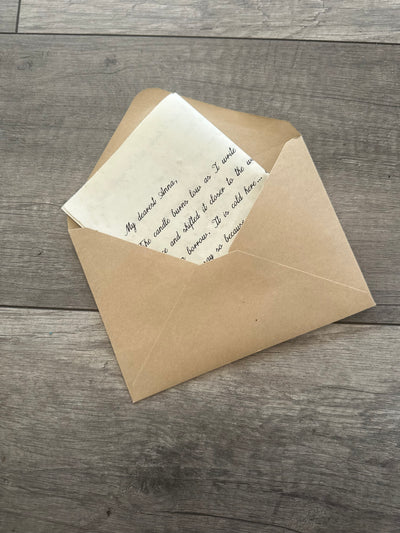 My dearest Anna,
The candle burns low as I write
and shifted it closer to the
borrow. It is cold here
so because